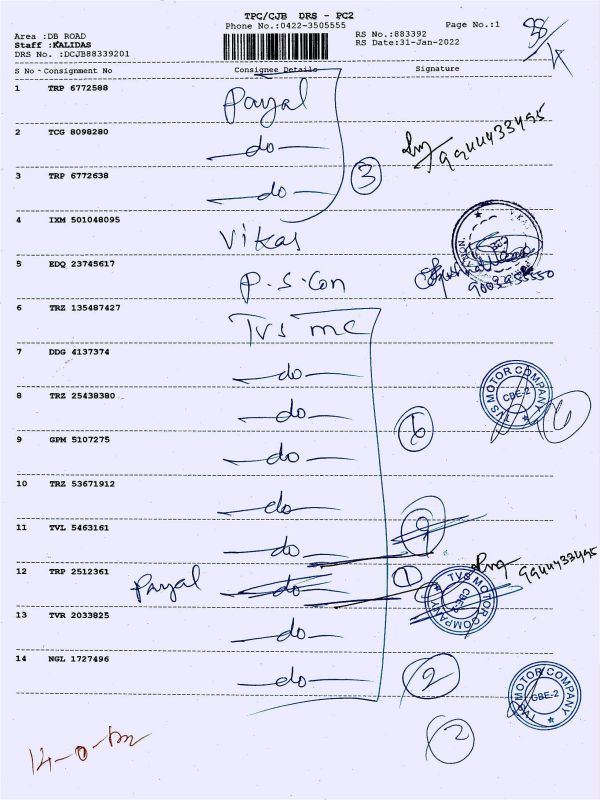 TPC/CJB DRS - PC2
Phone No.:0422-3505555
Page No.:1
Area :DB ROAD
Staff :KALIDAS
DRS No. :DCJB88339201
RS No.:883392
RS Date:31-Jan-2022
S No - Consignment No Consignee Details Signature
1 TRP 6772588 Payal
2 TCG 8098280 -do-
3 TRP 6772638 -do-
3
9944433495
4 IXM 501048095 Vikas
5 EDQ 23745617 P.S.Con
6 TRZ 135487427 TVS mc
7 DDG 4137374 -do-
8 TRZ 25438380 -do-
TVS MOTOR COMPANY
CBE-2
6
9 GPM 5107275 -do-
6
10 TRZ 53671912 -do-
11 TVL 5463161 -do-
9944433495
12 TRP 2512361 Payal -do-
1
TVS MOTOR COMPANY
CBE-2
13 TVR 2033825 -do-
14 NGL 1727496 -do-
2
TVS MOTOR COMPANY
CBE-2
2